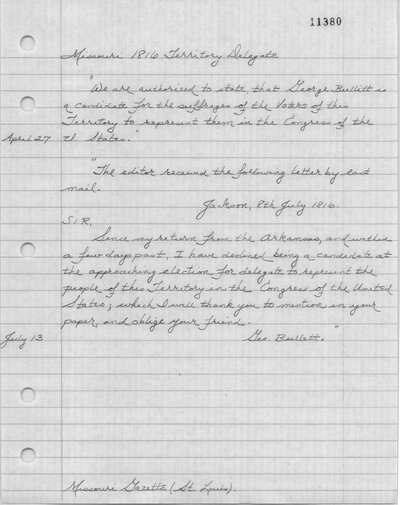 11380
Missouri 1816 Territory Delegate
"We are authorized to state, that George Bullitt is
a candidate for the suffrages of the Voters of this
Territory to represent them in the Congress of the
April 27 U. States."
"The editor received the following letter by last
mail.
Jackson, 8th July 1816.
SIR,
Since my return from the Arkansas, and within
a few days past, I have declined being a candidate at
the approaching election for delegate to represent the
people of this Territory in the Congress of the United
States; which I will thank you to mention in your
paper, and oblige your friend.
July 13 Geo. Bullett."
Missouri Gazette (St. Louis).